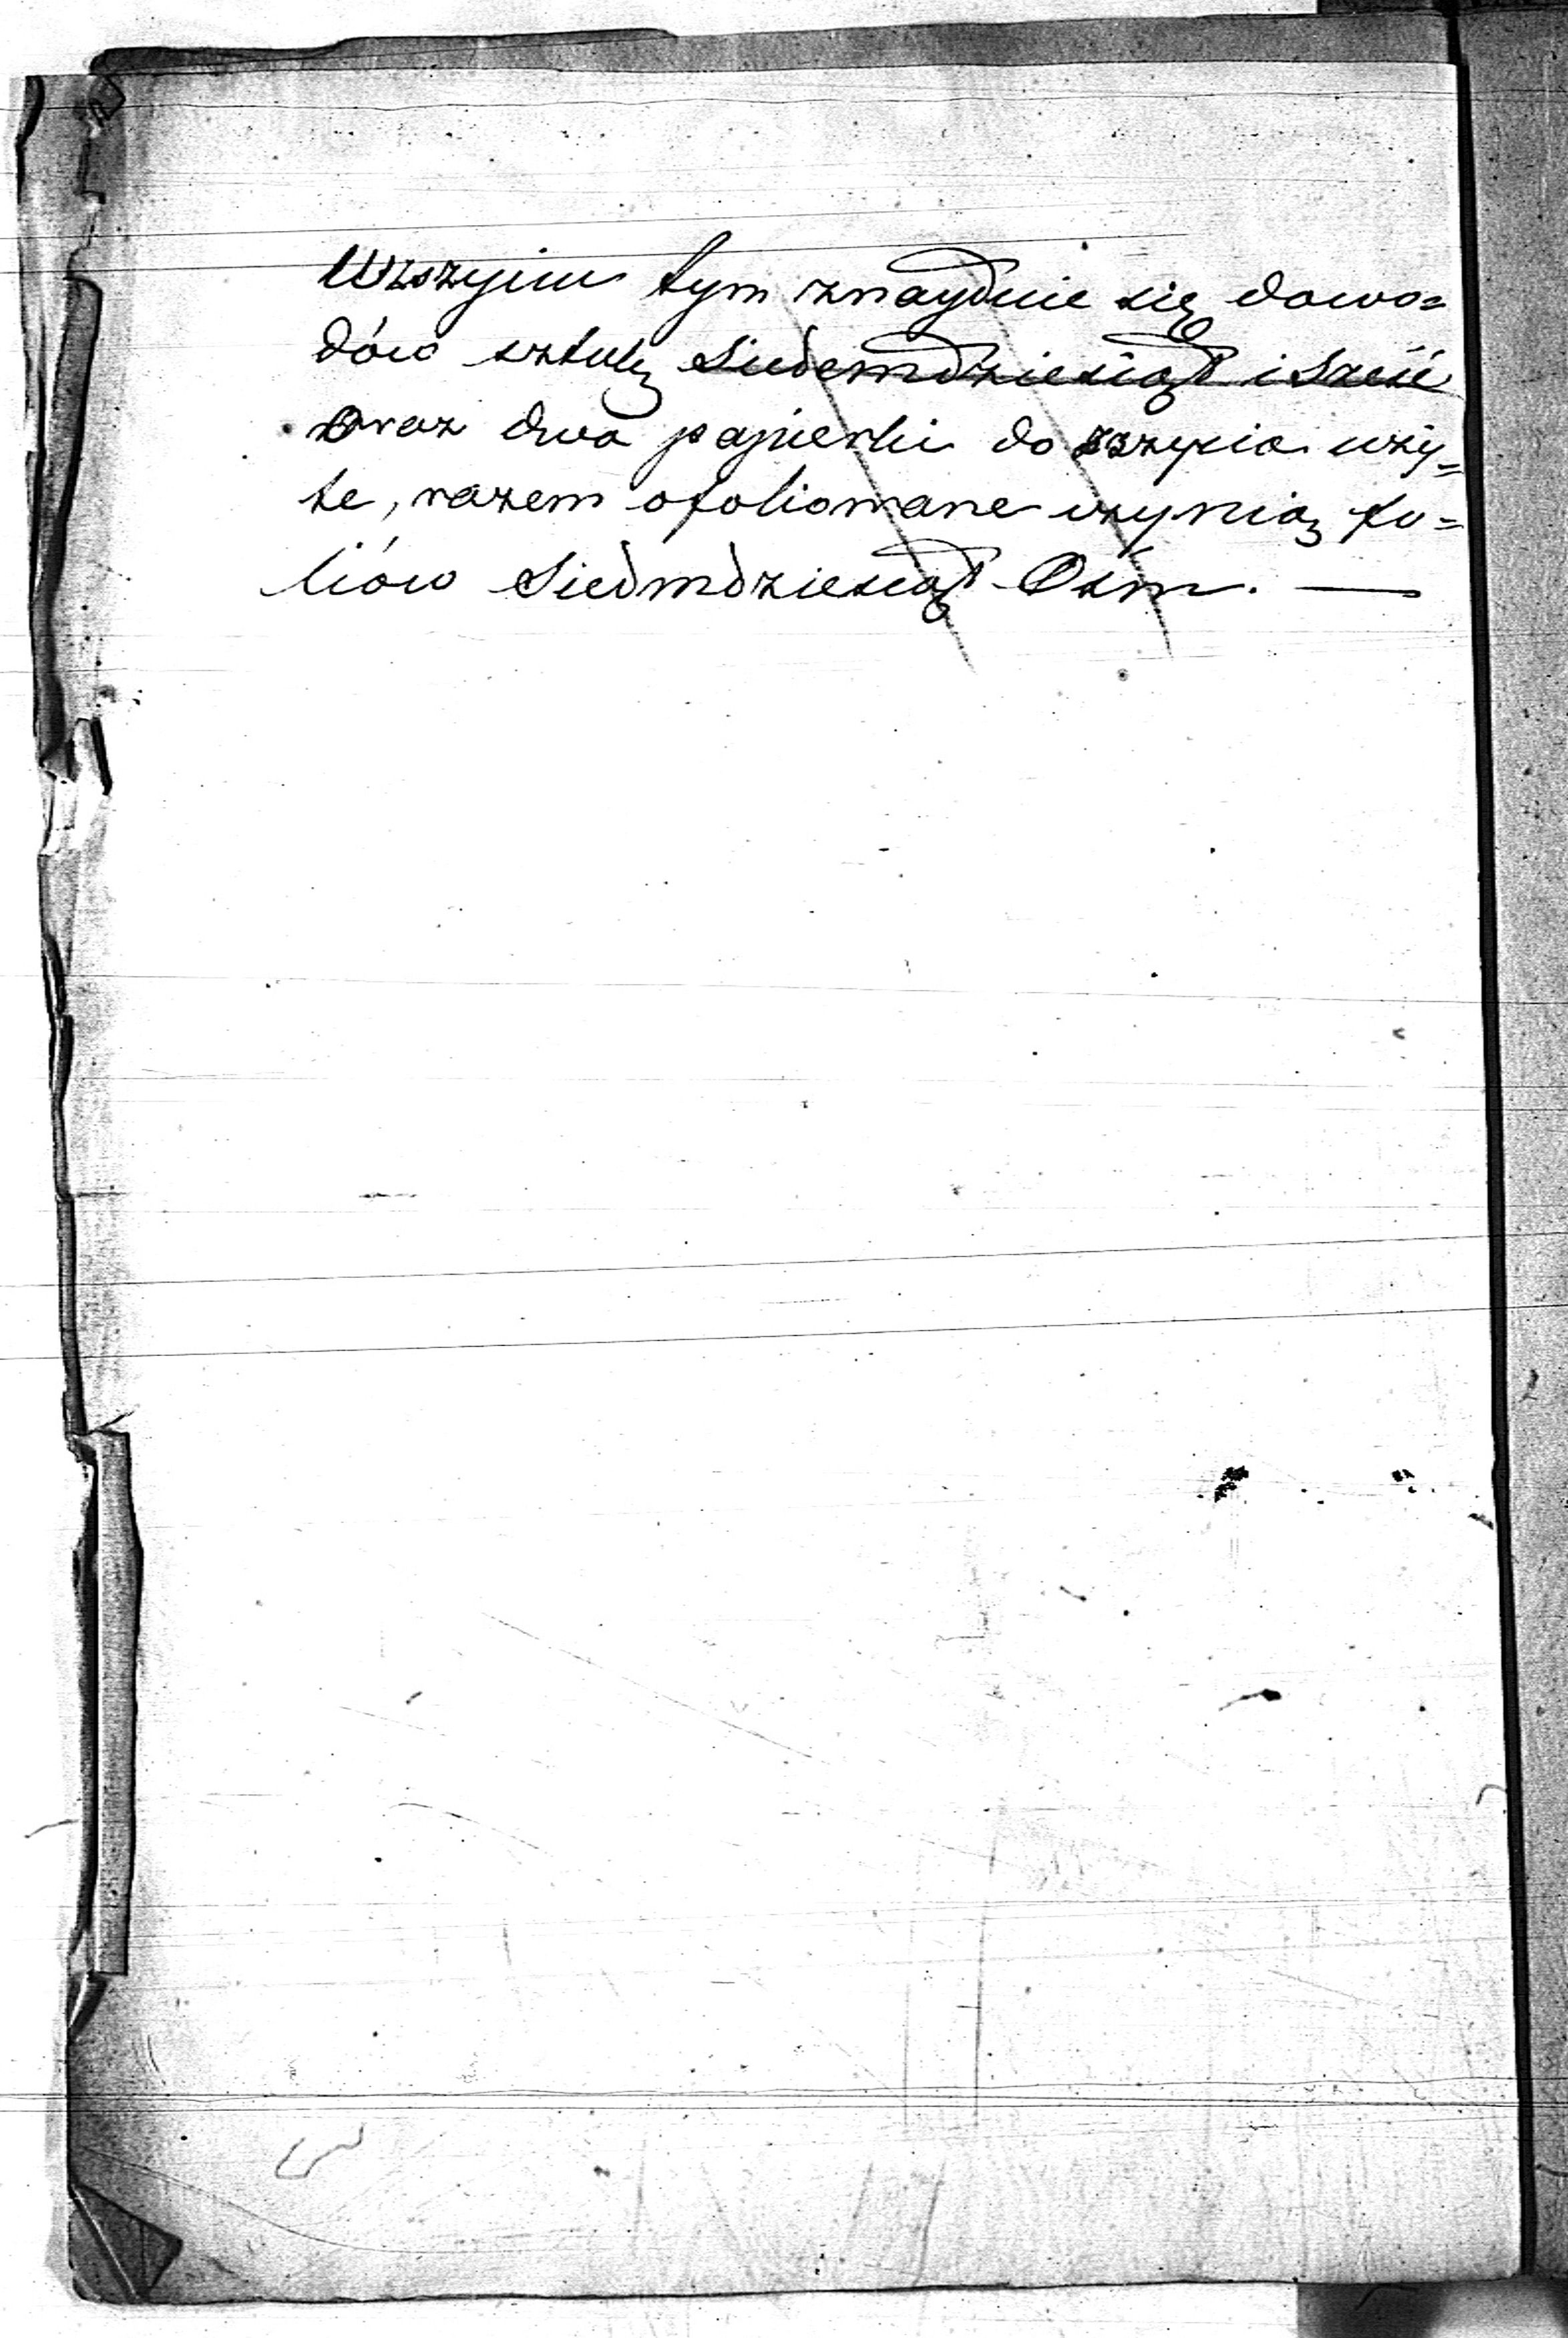 Wzszyciu tym znayduie się dowo=
dów sztuk Siedemdziesiąt i Sześć
oraz dwa papierki do zszycia uży=
te, razem ofoliowane czynią fo=
liów Siedmdziesiąt Ośm. —